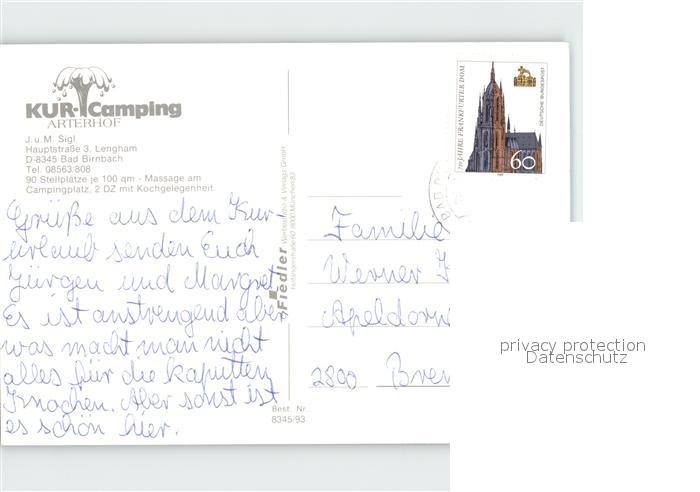 KUR-Camping
ARTERHOF
J. u. M. Sigl
Hauptstraße 3, Lengham
D-8345 Bad Birnbach
Tel. 08563/808
90 Stellplätze je 100 qm - Massage am
Campingplatz, 2 DZ mit Kochgelegenheit.
Grüße aus dem Kur-
urlaub senden Euch
Jürgen und Margret.
Es ist anstrengend aber
was macht man nicht
alles für die kaputten
Knochen. Aber sonst ist
es schön hier.
Fiedler Werbestudio & Verlags GmbH
Best. Nr.
8345/93
750 JAHRE FRANKFURTER DOM
DEUTSCHE BUNDESPOST
60
Familie
Werner
Apeldorn
2800 Bre
privacy protection
Datenschutz